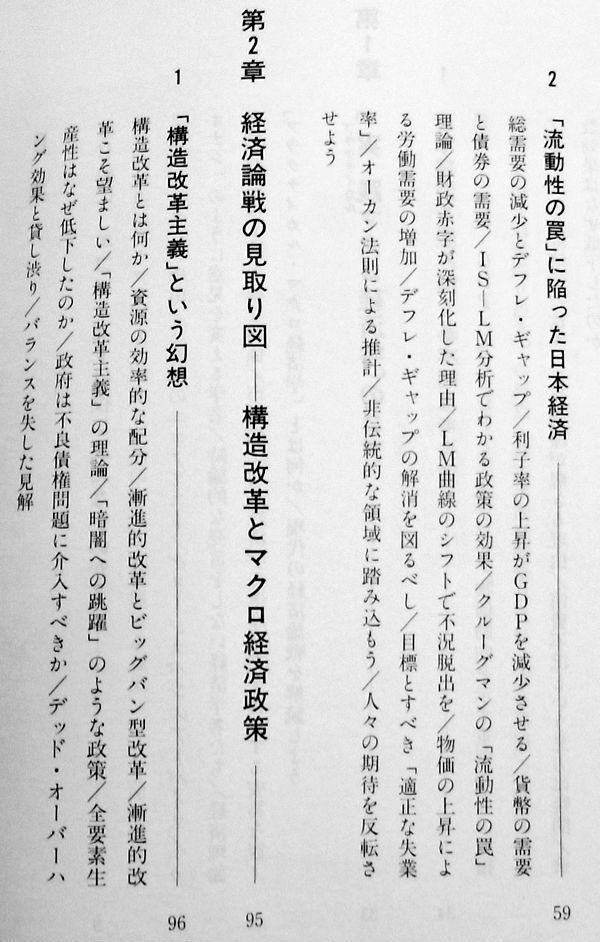 2 「流動性の罠」に陥った日本経済 —— 59
総需要の減少とデフレ・ギャップ/利子率の上昇がGDPを減少させる/貨幣の需要
と債券の需要/IS—LM分析でわかる政策の効果/クルーグマンの「流動性の罠」
理論/財政赤字が深刻化した理由/LM曲線のシフトで不況脱出を/物価の上昇によ
る労働需要の増加/デフレ・ギャップの解消を図るべし/目標とすべき「適正な失業
率」/オーカン法則による推計/非伝統的な領域に踏み込もう/人々の期待を反転さ
せよう
第2章 経済論戦の見取り図——構造改革とマクロ経済政策 —— 95
1 「構造改革主義」という幻想 —— 96
構造改革とは何か/資源の効率的な配分/漸進的改革とビッグバン型改革/漸進的改
革こそ望ましい/「構造改革主義」の理論/「暗闇への跳躍」のような政策/全要素生
産性はなぜ低下したのか/政府は不良債権問題に介入すべきか/デッド・オーバーハ
ング効果と貸し渋り/バランスを失した見解